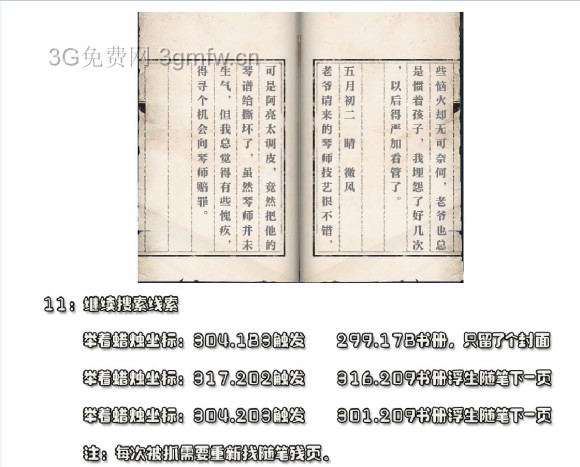 3G免费网 3gmfw.cn
些恼火却无可奈何，老爷也总
是惯着孩子，我埋怨了好几次
，以后得严加看管了。
五月初二　晴　微风
老爷请来的琴师技艺很不错，
可是阿亮太调皮，竟然把他的
琴谱给撕坏了，虽然琴师并未
生气，但我总觉得有些愧疚，
得寻个机会向琴师赔罪。
11：继续搜索线索
举着蜡烛坐标：304.183触发 299.178书册，只留了个封面
举着蜡烛坐标：317.202触发 316.209书册浮生随笔下一页
举着蜡烛坐标：304.203触发 301.209书册浮生随笔下一页
注：每次被抓需要重新找随笔残页。